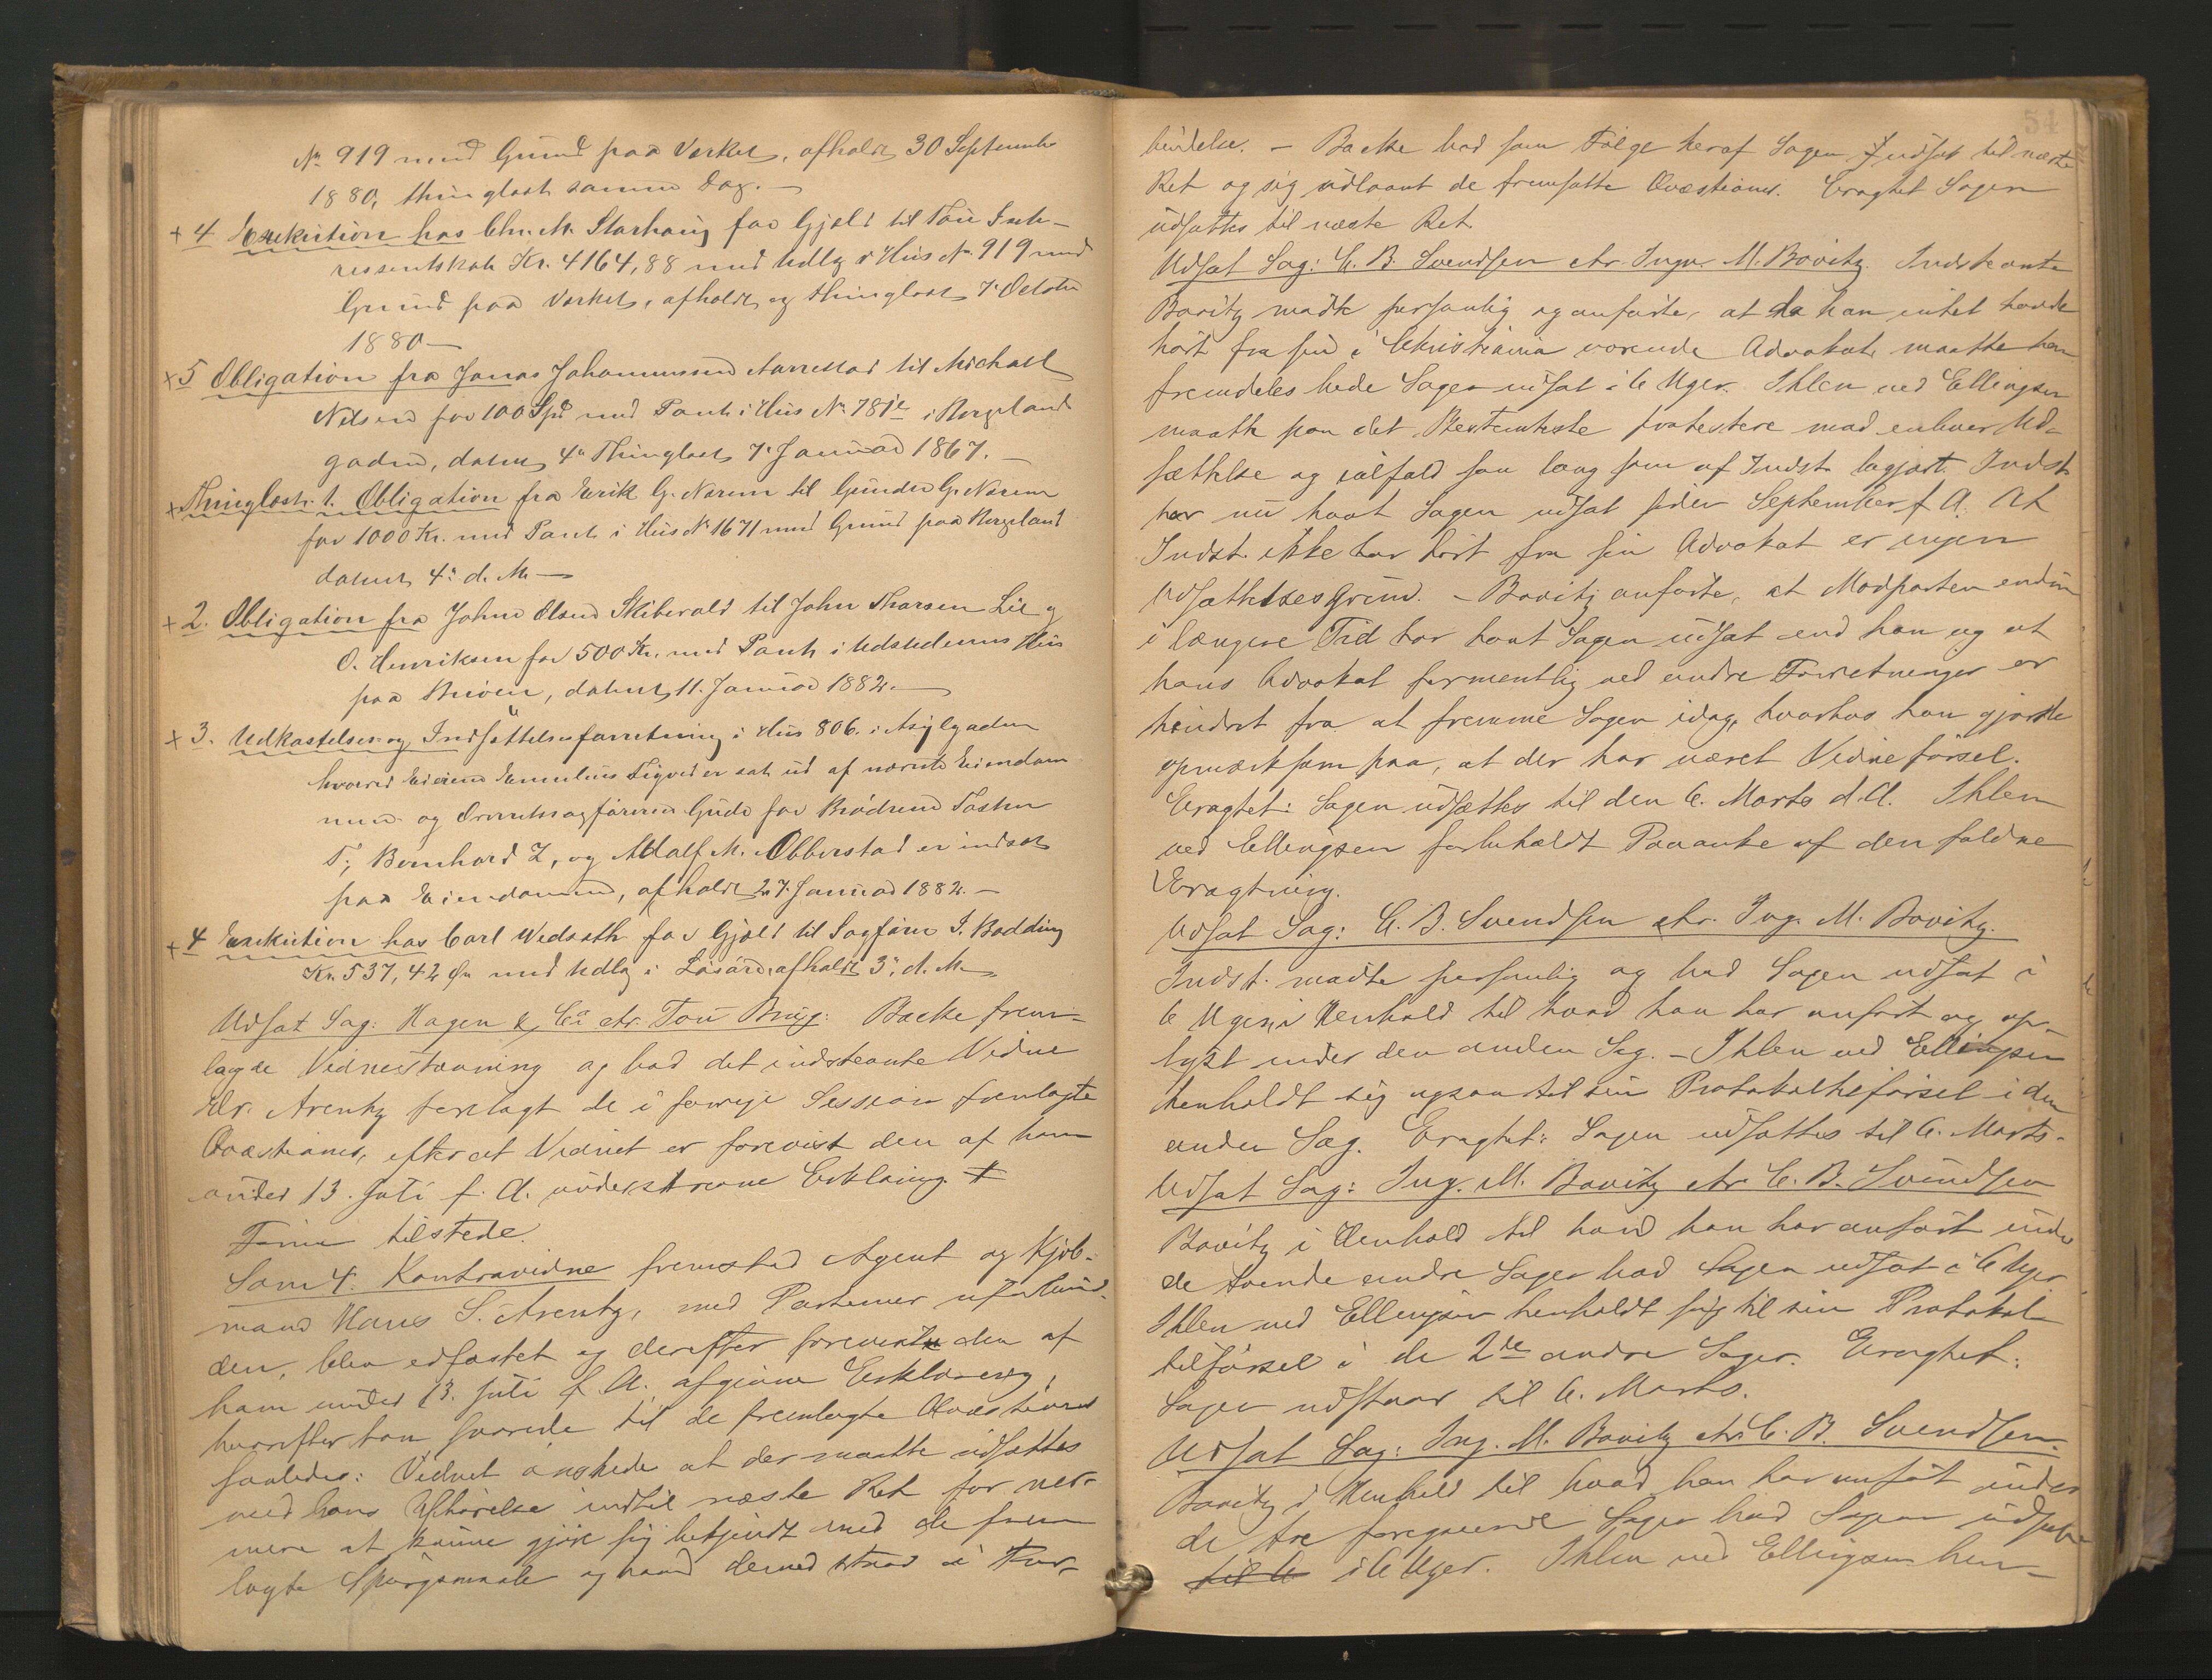 No 919 med Grund paa Verket, afholdt 30 September
1880, thinglæst samme Dag. —
+ 4 Exekution hos Chr. M. Starhoug for Gjæld til Tou Inte-
ressentskab Kr. 4164,88 med Udlæg i Hus No 919 med
Grund paa Verket, afholdt og thinglæst 7. October
1880 —
+5 Obligation fra Jonas Johannessen Aarrestad til Michael
Nilsen for 100 Spd med Pant i Hus No 781 i Bergeland
gaden, dateret 4. Thinglæst 7. Januar 1867. —
+ Thinglæst. 1. Obligation fra Erik G. Norem til Gunder G. Norem
for 1000 Kr. med Pant i Hus No 1671 med Grund paa Bergeland
dateret 4. d. M. —
+ 2. Obligation fra John Olsen Skibevold til John Thorsen Lie og
O. Henriksen for 500 Kr. med Pant i Udstederens Hus
paa Strøen, dateret 11. Januar 1882. —
+ 3. Udkastelses og Indsættelsesforretning i Hus 806. i Asylgaden
hvorved Eieren Cornelius Sigved er sat ud af nævnte Eiendom
men og Overretssagfører Gude for Brødrene Tasten
T; Bernhard Z, og Adolf M. Obbestad er indsat
paa Eiendommen, afholdt 27. Januar 1882. —
+ 4 Exekution hos Carl Wedseth for Gjæld til Sagfører I. Bødding
Kr. 537,42 Øre med Udlæg i Løsøre, afholdt 3. d. M. —
Udsat Sag: Hagen & Co ctr. Tou Brug: Backe frem-
lagde Vidnestævning og bad det indstevnte Vidne
Hr. Arentz forelagt de i forrige Session fremlagte
Qvæstioner, efterat Vidnet er forevist den af ham
under 13. Juli f. A. underskrevne Erklæring. +
Femin tilstede.
Som 4. Kontravidne fremstod Agent og Kjøb-
mand Hans S. Arentz, med Parterner uforbund-
den, blev edfæstet og derefter forevist den af
ham under 13. Juli f. A. afgivne Erklæring,
hvorefter han svarede til de fremlagte Qvæstioner
saaledes: Vidnet ønskede at der maatte udsættes
med hans Afhørelse indtil næste Ret for nær-
mere at kunne gjøre sig bekjendt med de frem
lagte Spørgsmaale og hvad dermed staar i For-
51
bindelse. — Backe bad som Følge heraf Sagen udsat til næste
Ret og sig udlaant de fremsatte Qvæstioner. Eragtet Sagen
udsættes til næste Ret.
Udsat Sag: C. B. Svendsen ctr. Ingv. M. Bovitz. Indstevnte
Bovitz mødte personlig og anførte, at da han intet havde
hørt fra sin i Christiania værende Advokat, maatte han
fremdeles bede Sagen udsat i 6 Uger. Ihlen ved Ellingsen
maatte paa det Bestemteste protestere mod enhver Ud-
sættelse og ialfald saa lang som af Indst. begjært. Indst.
har nu havt Sagen udsat siden September f. A. At
Indst. ikke har hørt fra sin Advokat er ingen
Udsættelsesgrund. — Bovitz anførte, at Modparten endnu
i længere Tid har havt Sagen udsat end han og at
hans Advokat formentlig ved andre Forretninger er
hindret fra at fremme Sagen idag, hvorhos han gjorde
opmærksom paa, at der har været Vidneførsel.
Eragtet: Sagen udsættes til den 6. Marts d. A. Ihlen
ved Ellingsen forbeholdt Paaanke af den faldne
Eragtning.
Udsat Sag: C. B. Svendsen ctr. Ing. M. Bovitz.
Indst. mødte personlig og bad Sagen udsat i
6 Uger, i Henhold til hvad han har anført og op-
lyst under den anden Sag. — Ihlen ved Ellingsen
henholdt sig ogsaa til sin Protokoltilførsel i den
anden Sag. Eragtet: Sagen udsættes til 6. Marts.
Udsat Sag: Ing. M. Bovitz ctr. C. B. Svendsen
Bovitz i Henhold til hvad han har anført under
de tvende andre Sager bad Sagen udsat i 6 Uger
Ihlen ved Ellingsen henholdt sig til sin Protokol
tilførsel i de 2de andre Sager. Eragtet:
Sagen udstaar til 6. Marts.
Udsat Sag: Ing. M. Bovitz ctr. C. B. Svendsen.
Bovitz i Henhold til hvad han har anført under
de tre foregaaende Sager bad Sagen udsat
til 6 i 6 Uger. Ihlen ved Ellingsen hen-